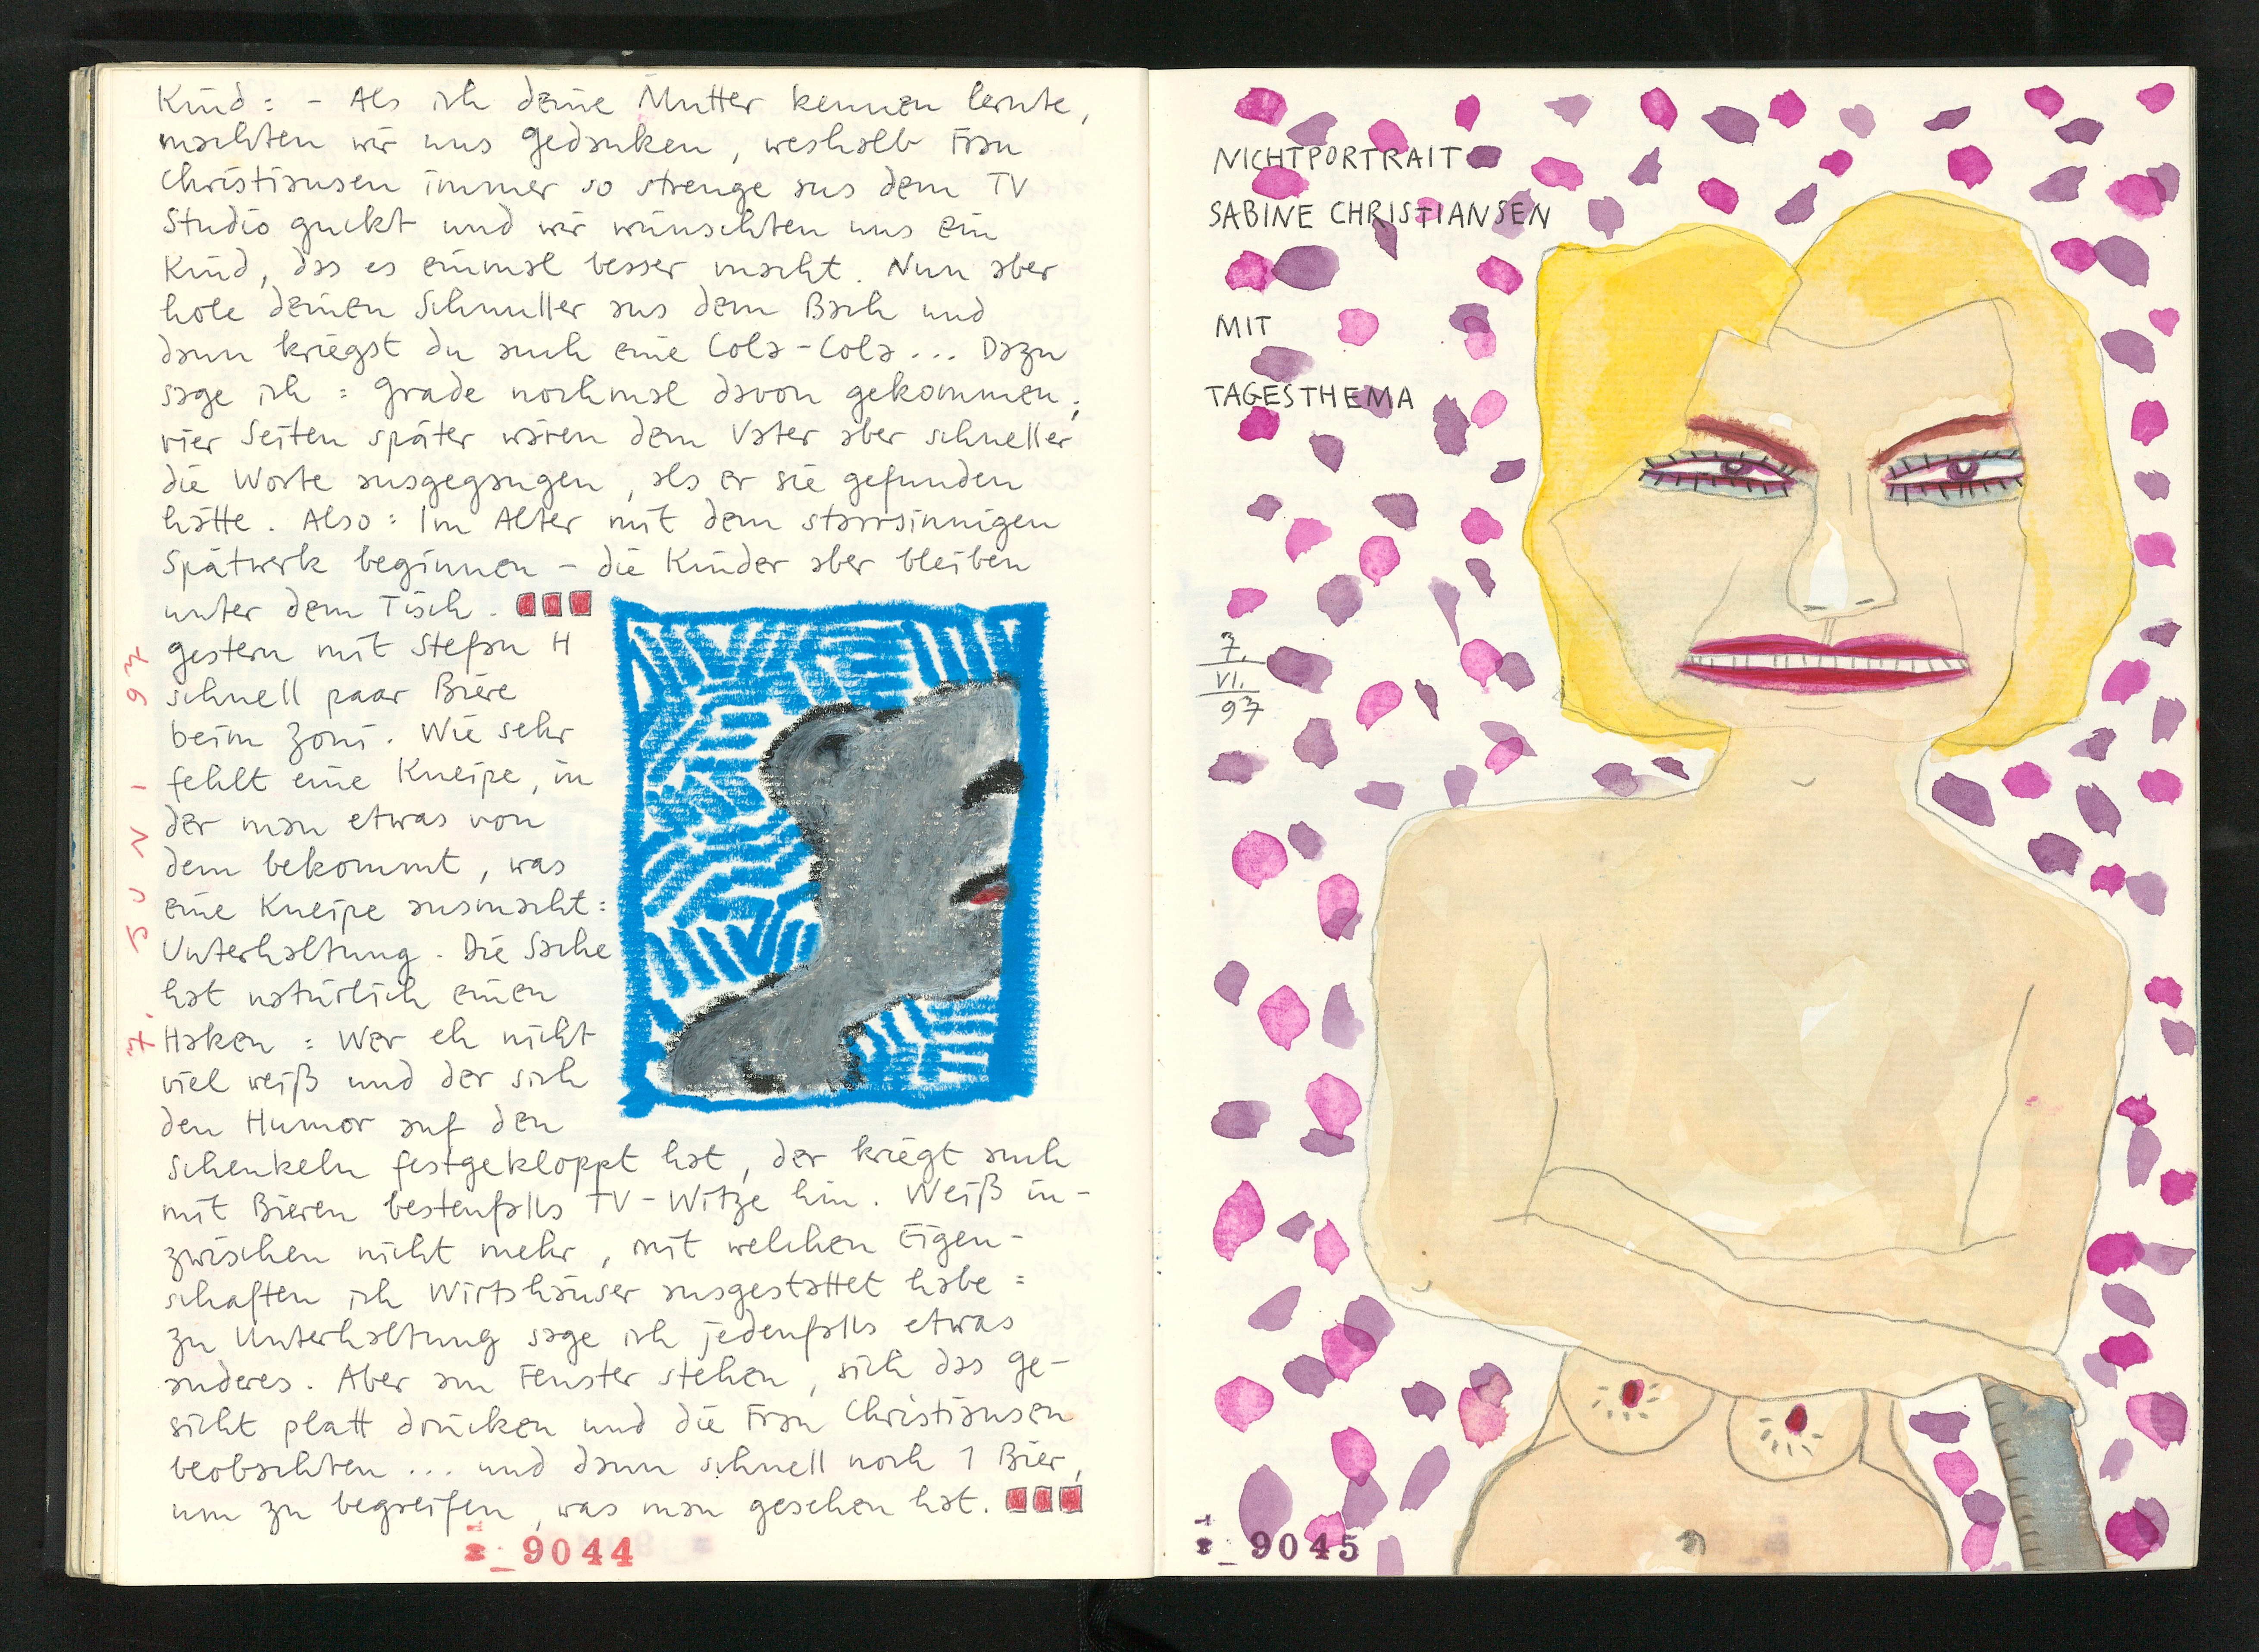 Kind: - Als ich deine Mutter kennen lernte,
machten wir uns Gedanken, weshalb Frau
Christiansen immer so strenge aus dem TV
Studio guckt und wir wünschten uns ein
Kind, das es einmal besser macht. Nun aber
hole deinen Schnuller aus dem Bach und
dann kriegst du auch eine Cola-Cola... Dazu
sage ich: Grade nochmal davon gekommen;
vier Seiten später wären dem Vater aber schneller
die Worte ausgegangen, als er sie gefunden
hätte. Also: Im Alter mit dem starrsinnigen
Spätwerk beginnen - die Kinder aber bleiben
unter dem Tisch.
7. JUNI 97
gestern mit Stefan H
schnell paar Biere
beim Zoni. Wie sehr
fehlt eine Kneipe, in
der man etwas von
dem bekommt, was
eine Kneipe ausmacht:
Unterhaltung. Die Sache
hat natürlich einen
Haken: Wer eh nicht
viel weiß und der sich
den Humor auf den
Schenkeln festgekloppt hat, der kriegt auch
mit Bieren bestenfalls TV-Witze hin. Weiß in-
zwischen nicht mehr, mit welchen Eigen-
schaften ich Wirtshäuser ausgestattet habe:
zu Unterhaltung sage ich jedenfalls etwas
anderes. Aber am Fenster stehen, sich das Ge-
sicht platt drücken und die Frau Christiansen
beobachten... und dann schnell noch 1 Bier,
um zu begreifen, was man gesehen hat.
9044
NICHTPORTRAIT
SABINE CHRISTIANSEN
MIT
TAGESTHEMA
7.
VI.
97
9045